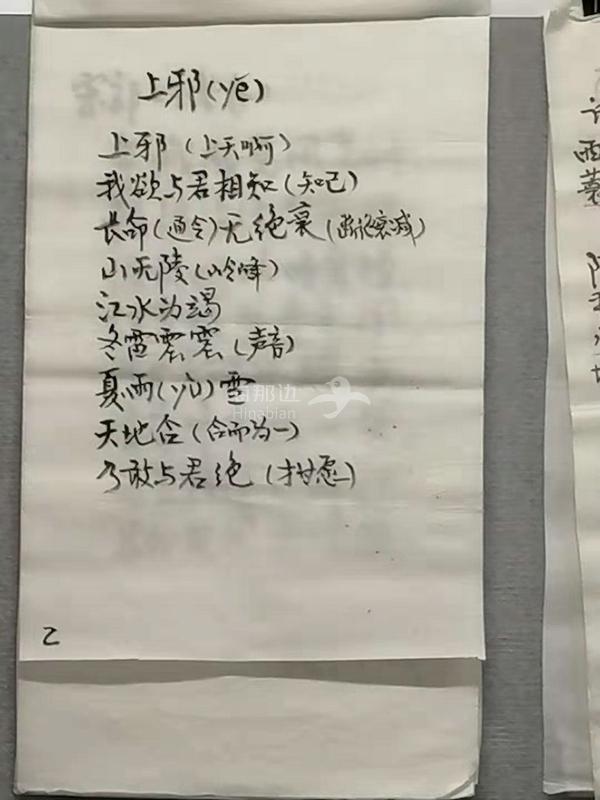 上邪(yé)
上邪(上天啊)
我欲与君相知(知己)
长命(通令)无绝衰(断绝衰减)
山无陵(山令峰)
江水为竭
冬雷震震(声音)
夏雨(yù)雪
天地合(合而为一)
乃敢与君绝(才甘愿)
乙
海那边
Hinabian